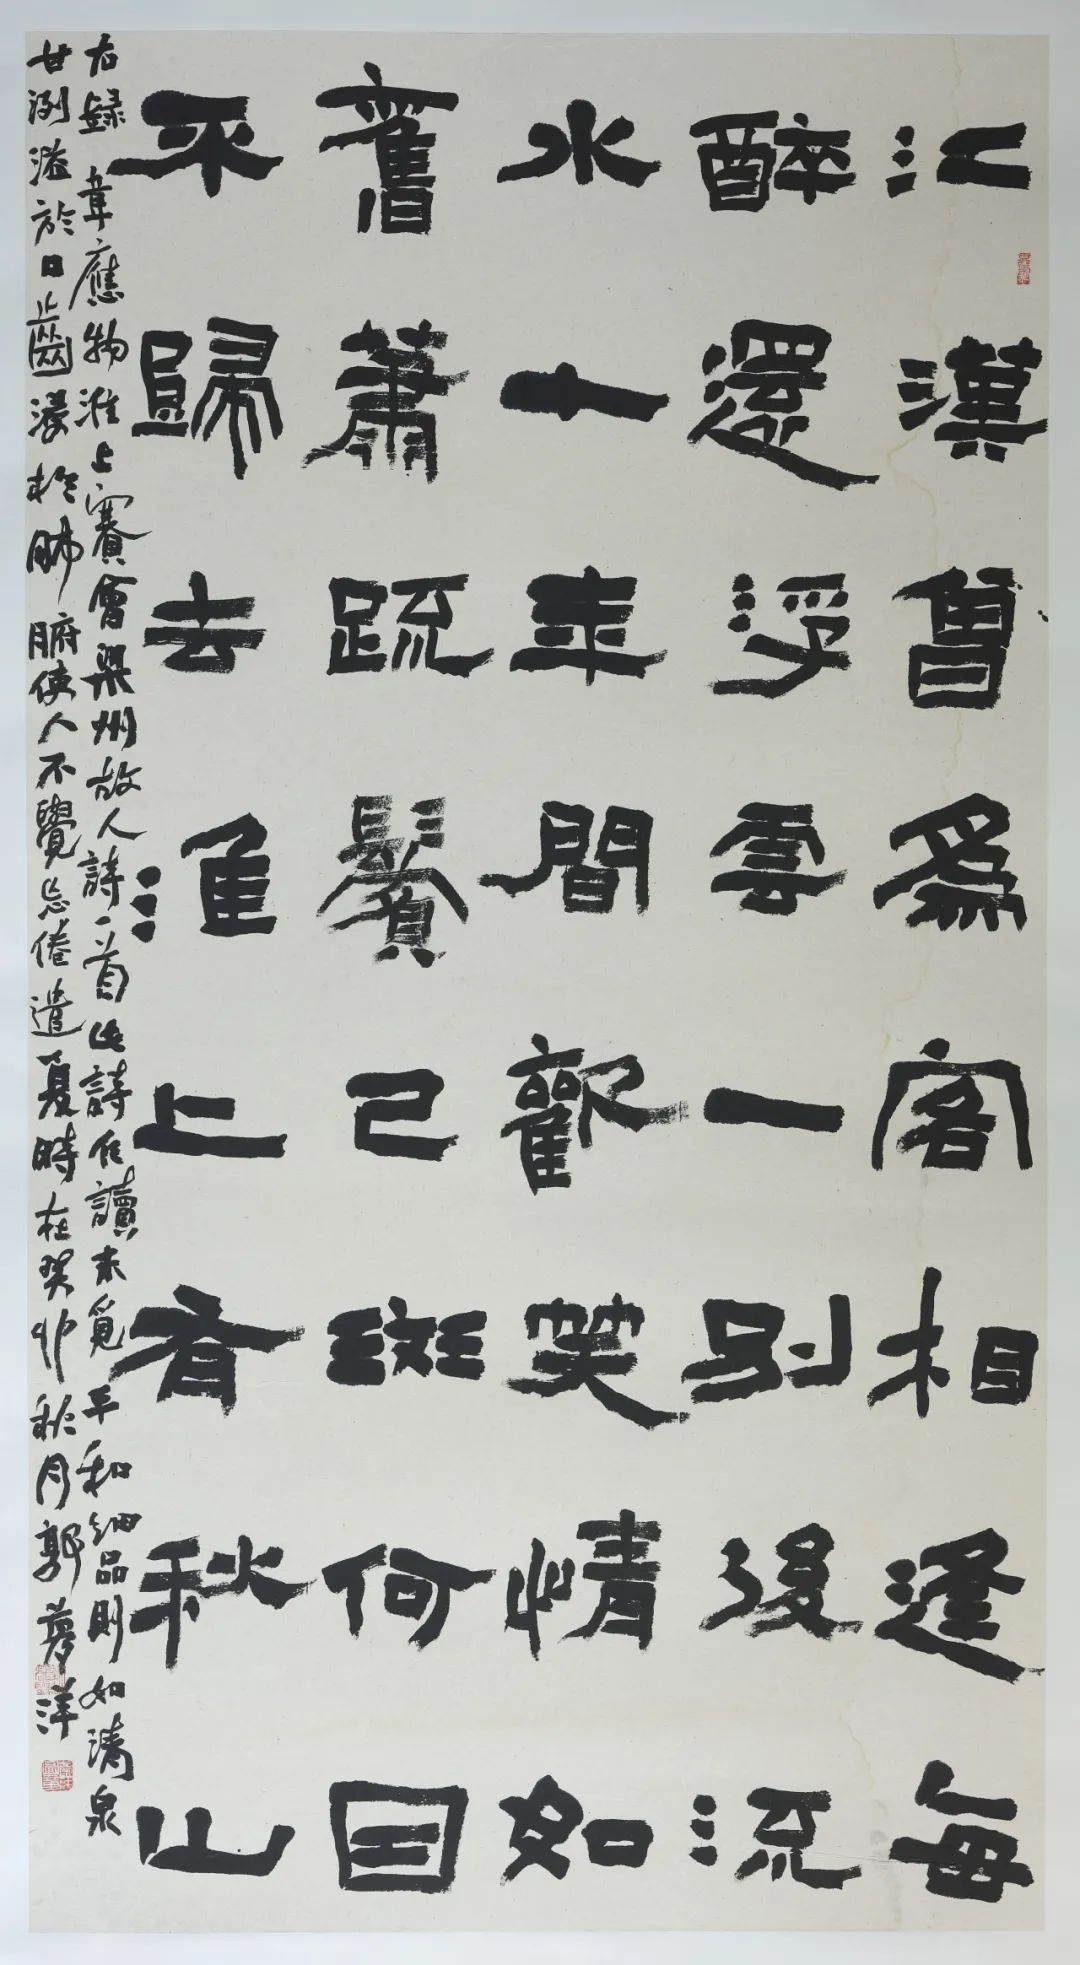 江漢曾爲客相逢每
醉還浮雲一別後流
水十年間歡笑情如
舊蕭疏鬢已斑何因
不歸去淮上看秋山
右錄韋應物淮上喜會梁州故人詩一首此詩僅讀未覓平和細品則如清泉
甘洌溢於口齒浸於肺腑使人不覺忘倦遣夏時在癸卯秋月郭夢洋